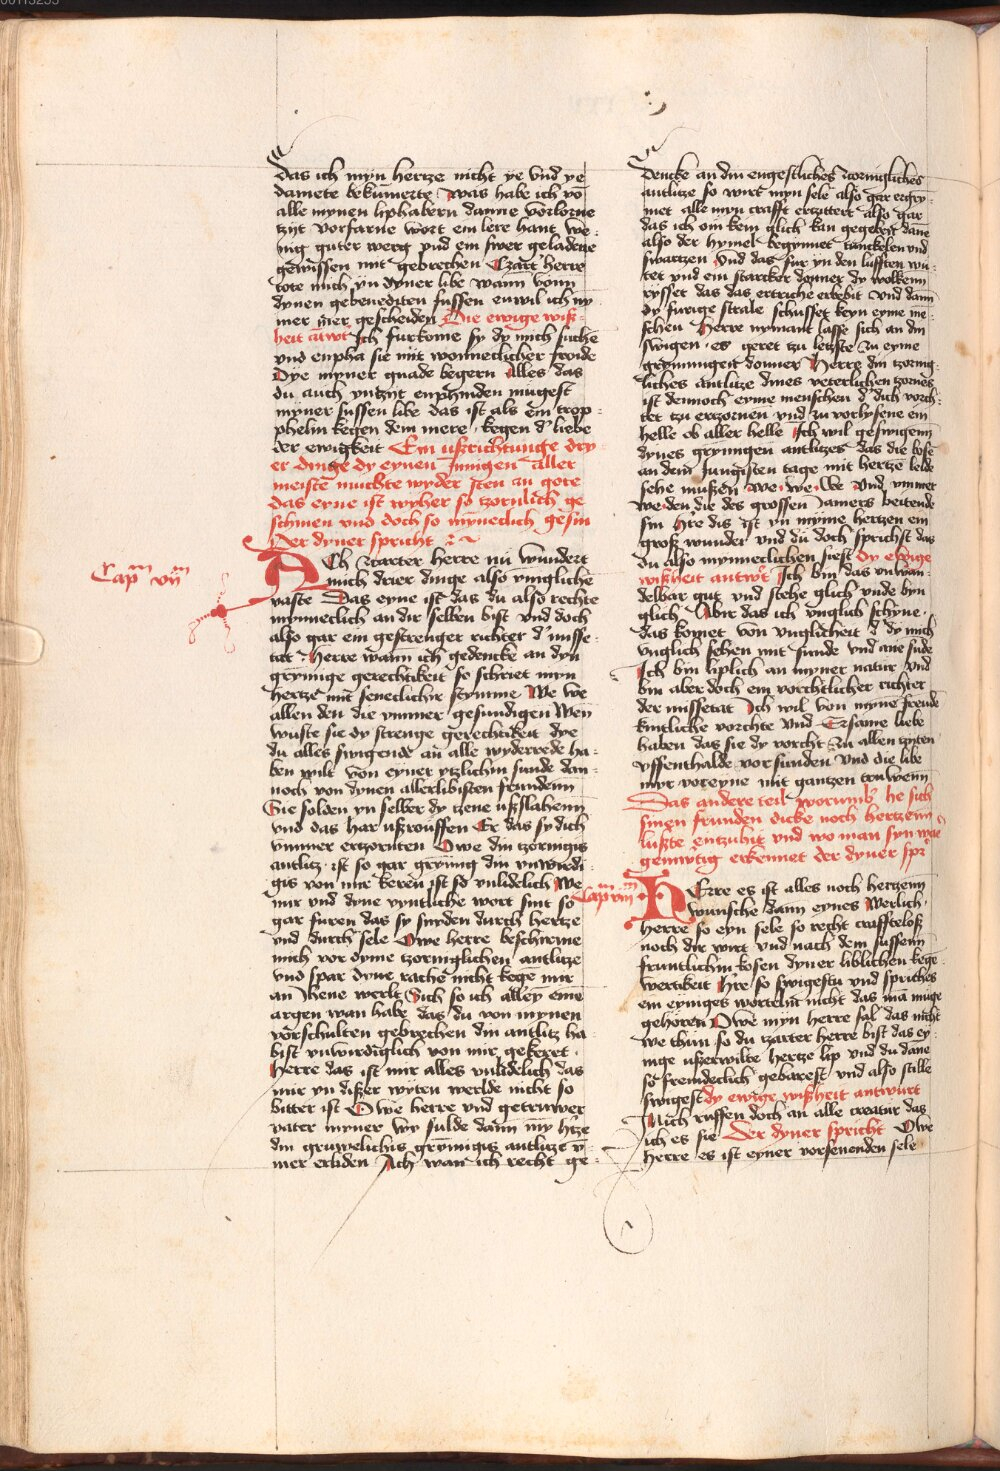 das ich myn hertze nicht ye vnd ye
damete bekūmerte was habe ich vō
alle mynen liphabern danne vorlorne
tzyt vorfarne wort ein lere hant we-
nig guter werg vnd ein swer geladene
gewissen mit gebrechen Czart herre
tote mich yn dyner libe wann vonn
dynen gebenediten fussen enwil ich ny
mer mer gescheiden Die ewige wiß-
heit ātwt Ich furkome sy dy mich suche
vnd enpha sie mit wonneclicher froide
Dye myner gnade begern Alles das
du auch yntzyt enphynden mugest
myner sussen libe das ist als ein trop-
phelin kegen dem mere kegen d' liebe
der ewigkeit Ein ußrichtunge dry
er dinge dy eynen Innigen aller
meiste muchte wyder sten zu gote
das eyne ist wyher so tzornlich ge
schinen vnd doch so mynneclich gesin
Der dyner spricht
Cap^m vij^m
ACh tzarter herre nü wundert
mich drier dinge also yngliche
vaste Das eyne ist das du also rechte
mynneclich an dir selben bist vnd doch
also gar ein gestrenger richter d' misse-
tat Herre wann ich gedencke an dyn
grymige gerechtikeit so schriet myn
hertze mit seneclicher stymme We we
allen den die ymmer gesundigen Wen
wuste sie dy strenge gerechtikeit dye
du alles swigende an alle wyderrede ha-
ben wilt von eyner ytzlichin sunde den-
noch von dynen allerlibisten frundenn
Sie solden yn selber dy tzene ußslahenn
vnd das har ußrouffen Er das sy dich
ymmer ertzornten Owe din tzornigs
antlitz ist so gar grymig din vnwirdi-
gis von mir keren ist so vnlidelich We
mir vnd dyne vyntliche wort sint so
gar furen das sy snyden durch hertze
vnd durch sele Owe herre beschirme
mich vor dyme tzorniglichen antlitze
vnd spar dyne rache nicht kegē mir
an Jhene werlt Sich so ich alleȳ eine
argen wan habe das du von mynen
vorschulten gebrechen din antlitz ha
bist vnwirdiglich von mir gekeret
Herre das ist mir alles vnlidelich das
mir yn disser wyten werlde nicht so
bitter ist Owe herre vnd getruwer
vater myner wy sulde dann my h'tze
din gruwelichis grymigis antlitze y-
mer erliden Ach wan ich recht ge-
dencke an din engestliches tzornigliches
antlitze so wirt myn sele also gar ergry-
met alle myn crafft ertzittert also gar
das ich om kein glich kan gegebin dane
also der hymel begynnet tunckelen vnd
swartzen Vnd das fur yn den lufften wu-
tet vnd ein starcker donner dy wolkenn
rysset das das ertriche erbebit vnd dann
dy furige strale schusset keyn eyme me-
schen Herre nymant lasse sich an din
swigen es geret tzu letzste zu eyme
grymmigen donner Herre din tzornig-
liches antlitze dines veterlichen tzornes
ist dennoch eyme menschen d' dich vorch-
tet tzu ertzornen vnd zu vorlysene ein
helle ob aller helle Ich wil geswigenn
dynes grymigen antlitzes das die bose
an dem Jungisten tage mit hertzē leide
sehe mußen We we We vnd ymmer
we den die des grossen Jamers beitende
sin H're dis ist yn myme hertzen ein
groß wunder vnd du doch sprichst das
du also mynneclichen siest Dy ewige
wißheit antwt Ich bin das vnwan-
delbar gut vnd stehe glich vnde byn
glich Abir das ich vnglich schyne
das komet von vnglicheit d' dy mich
vnglich sehen mit sunde vnd ane sūde
Ich bin liplich an myner natur vnd
bin aber doch ein vorchtlicher richter
der missetat Ich wil von myne freude
kintliche vorchte vnd Ersame liebe
haben das sie dy vorcht zu allen tzyten
vffenthalde vor sunden Vnd die libe
myr voreyne mit gantzen truwenn
Das ander teil worumb he sich
sinen frunden dicke noch hertzenn
lußte entzuhit vnd wo man syn ware
geinwtig erkennet der dyner spr'
Cap^m viij^m
HErre es ist alles noch hertzenn
wunsche dann eynes Werlich
herre so eyn sele so recht craffteloß
noch dir wirt vnd nach dem sussenn
fruntlichin kosen dyner liblichen kege-
wertikeit H're so swigestu vnd spriches
ein eyniges wortelin nicht das mā muge
gehoren Owe myn herre sal das nicht
we thun so du tzarter herre bist das ey-
nige ußerwilte hertze lip vnd du dane
so fremdeclich gebarest vnd also stille
swigest dy ewige wißheit antwurt
Mich ruffen doch an alle creatur das
ich es sie Der dyner spricht Owe
Herre es ist eyner vorsenenden sele